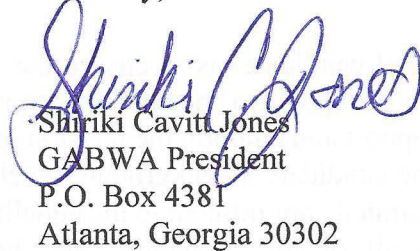 Shiriki C Jones
Shiriki Cavitt Jones
GABWA President
P.O. Box 4381
Atlanta, Georgia 30302